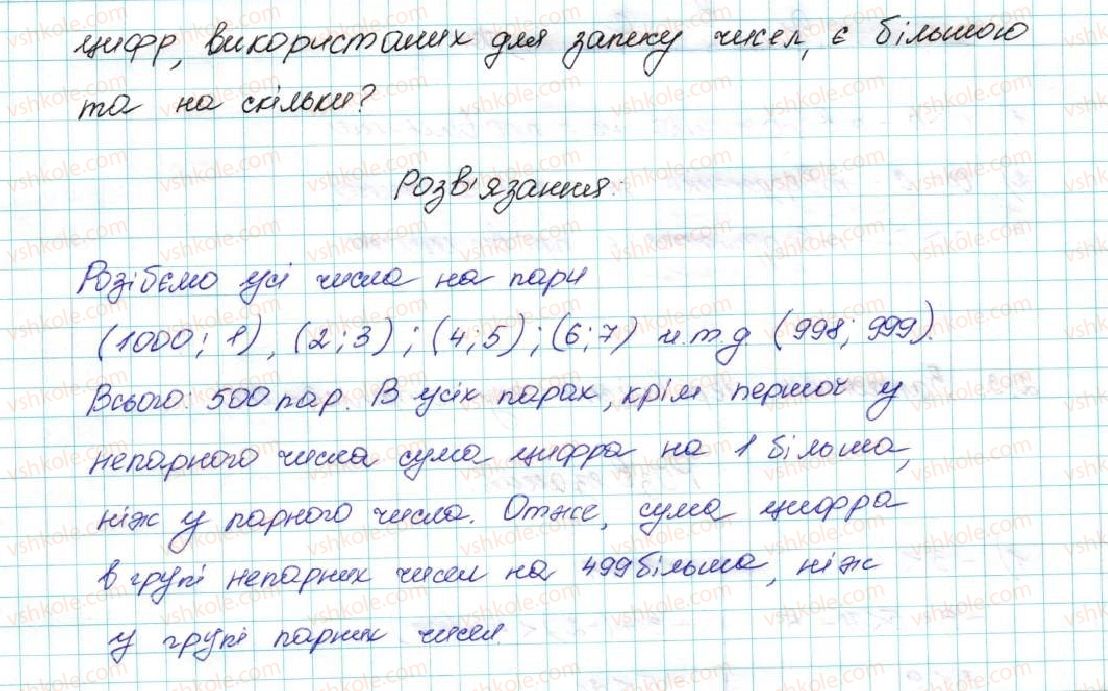 цифр, використаних для запису чисел, є більшою
та на скільки?
Розв'язання.
Розібємо усі числа на пари
(1000; 1), (2; 3); (4; 5); (6; 7) и.т.д. (998; 999).
Всього: 500 пар. В усіх парах, крім першої у
непарного числа сума цифра на 1 більша,
ніж у парного числа. Отже, сума цифра
в групі непарних чисел на 499 більша, ніж
у групі парних чисел.